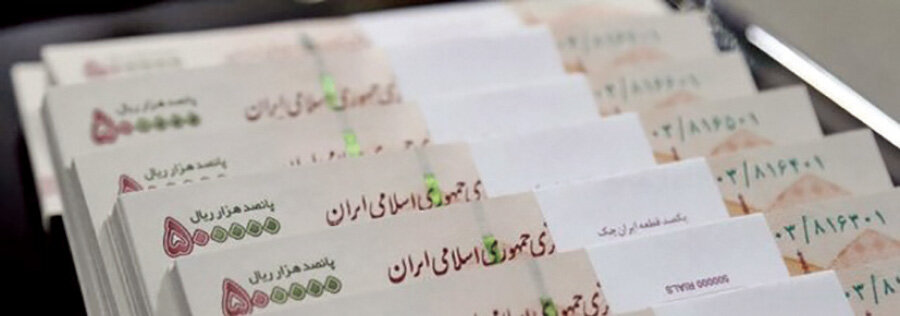 ۰۳/۸۱۶۶۰۱
پانصد هزار ریال
۵۰۰۰۰۰
جمهوری اسلامی ایران
۰۳/۸۱۶۵۰۱
پانصد هزار ریال
جمهوری اسلامی ایران
۰۳/۸۱۶۴۰۱
پانصد هزار ریال
۵۰۰۰۰۰
جمهوری اسلامی ایران
یکصد قطعه ایران چک
۰۳/۸۱۶۳۰۱
پانصد هزار ریال
۵۰۰۰۰۰
جمهوری اسلامی ایران
500000 RIALS